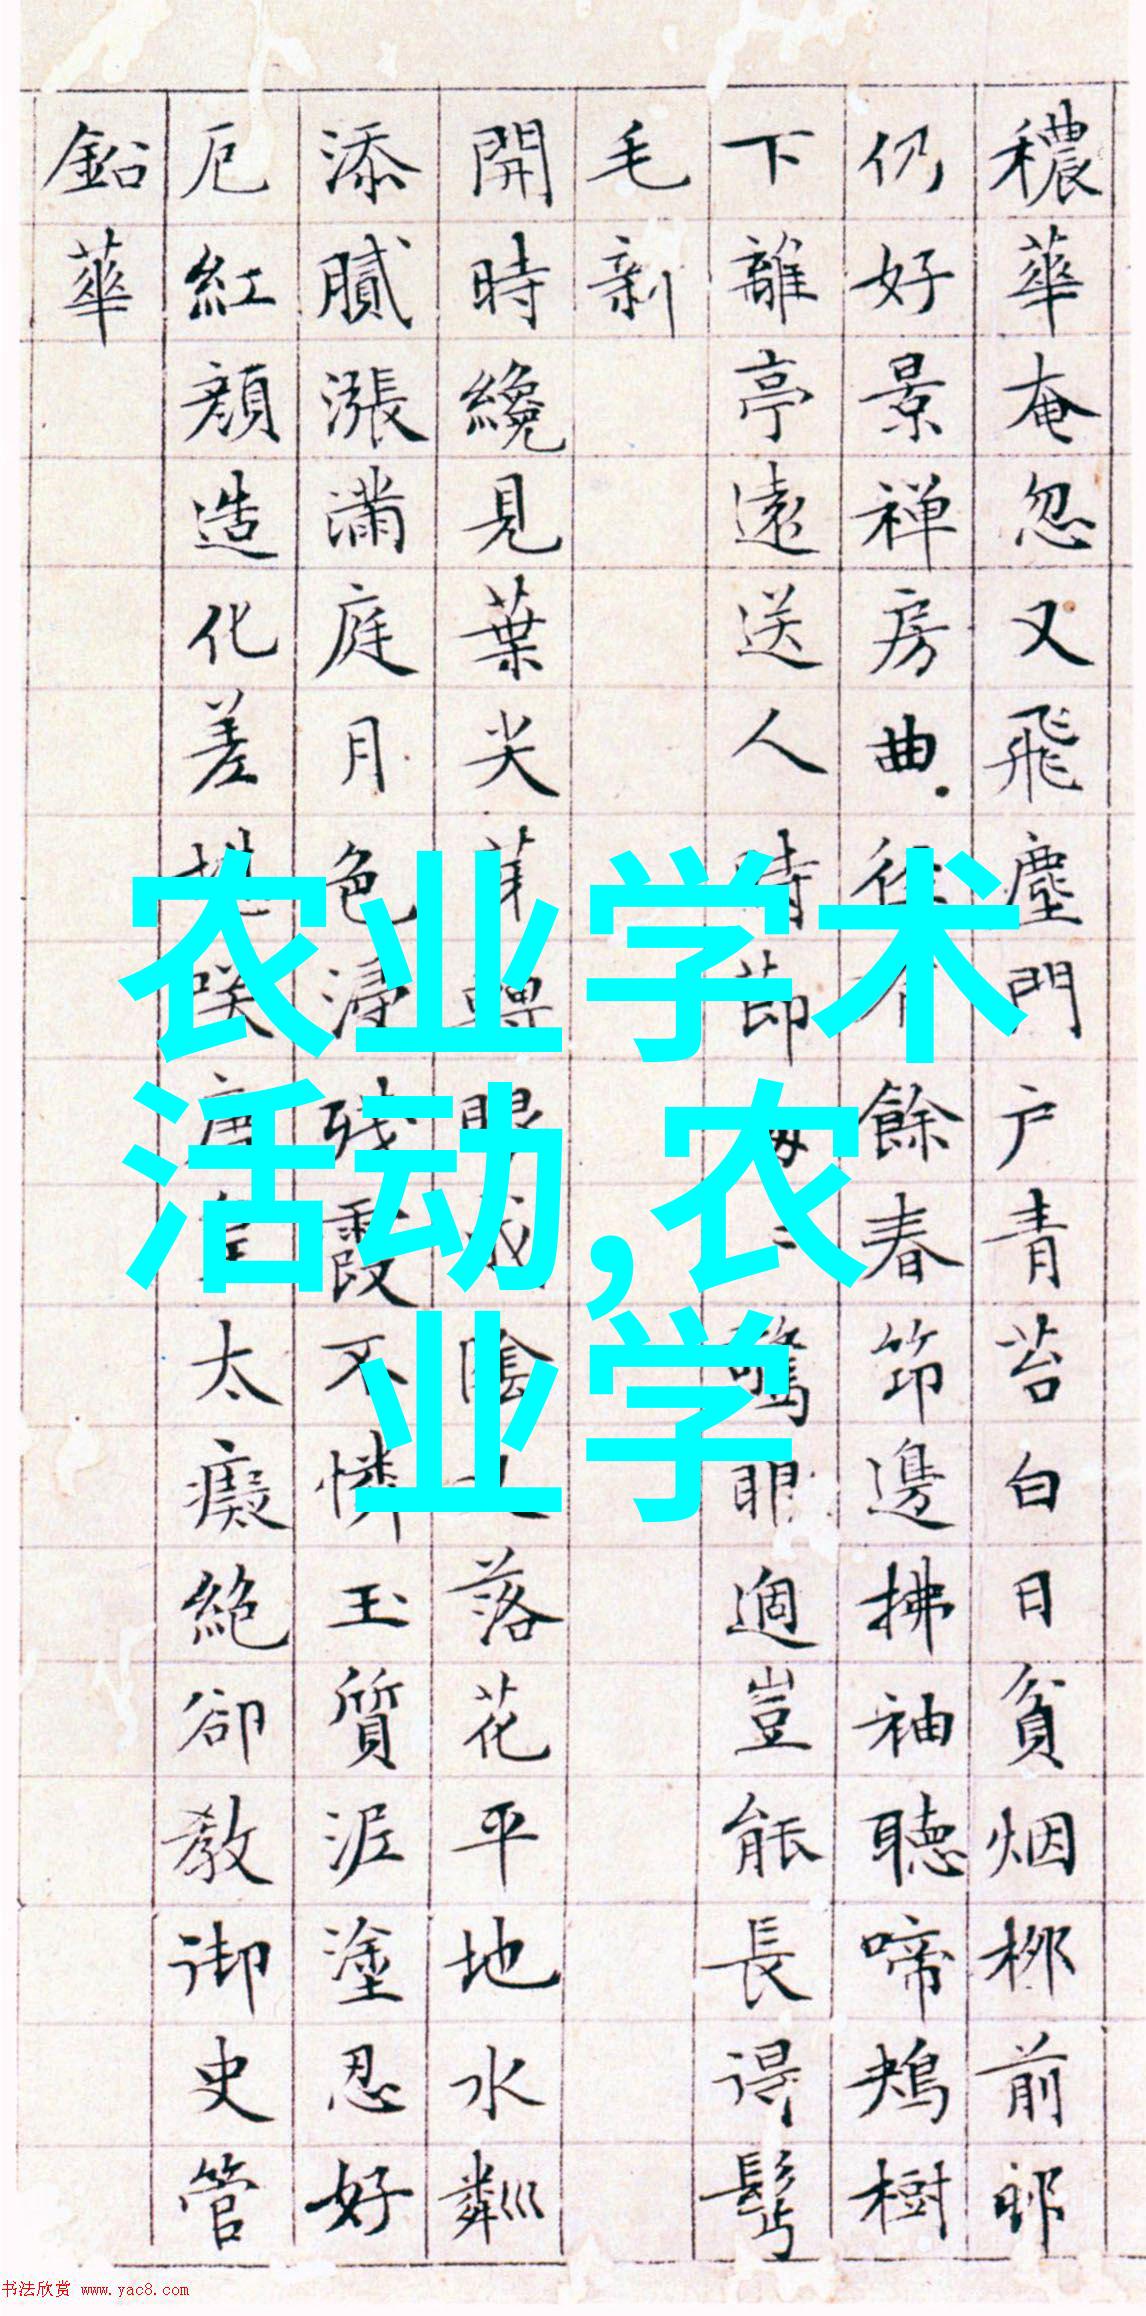 穠華奄忽又飛塵門户青苔白日貧烟柳前郎
仍好景禅房曲餘春笻邊拂袖聴啼鴂樹
下離亭遠送人時節驚眼適豈能長得髩
毛新
開時纔見葉尖芽轉眼成陰落花平地水粼巛
添膩漲滿庭月色浸殘霞不憐玉質泥塗忍好
厄紅顔造化差太癡絶卻教御史管
鉛華
农业学术
活动,农
业学
书法欣赏 www.yac8.com